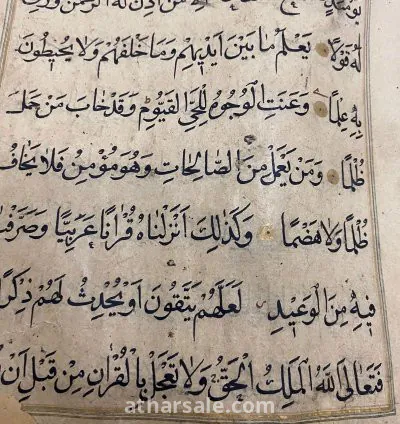 يومئذ من أذن له الرحمن ور
له قولا يعلم ما بين أيديهم وما خلفهم ولا يحيطون
به علما وعنت الوجوه للحي القيوم وقد خاب من حمل
ظلما ومن يعمل من الصالحات وهو مؤمن فلا يخاف
ظلما ولا هضما وكذلك أنزلناه قرآنا عربيا وصرفنا
فيه من الوعيد لعلهم يتقون أو يحدث لهم ذكرا
فتعالى الله الملك الحق ولا تعجل بالقرآن من قبل أن
atharsale.com